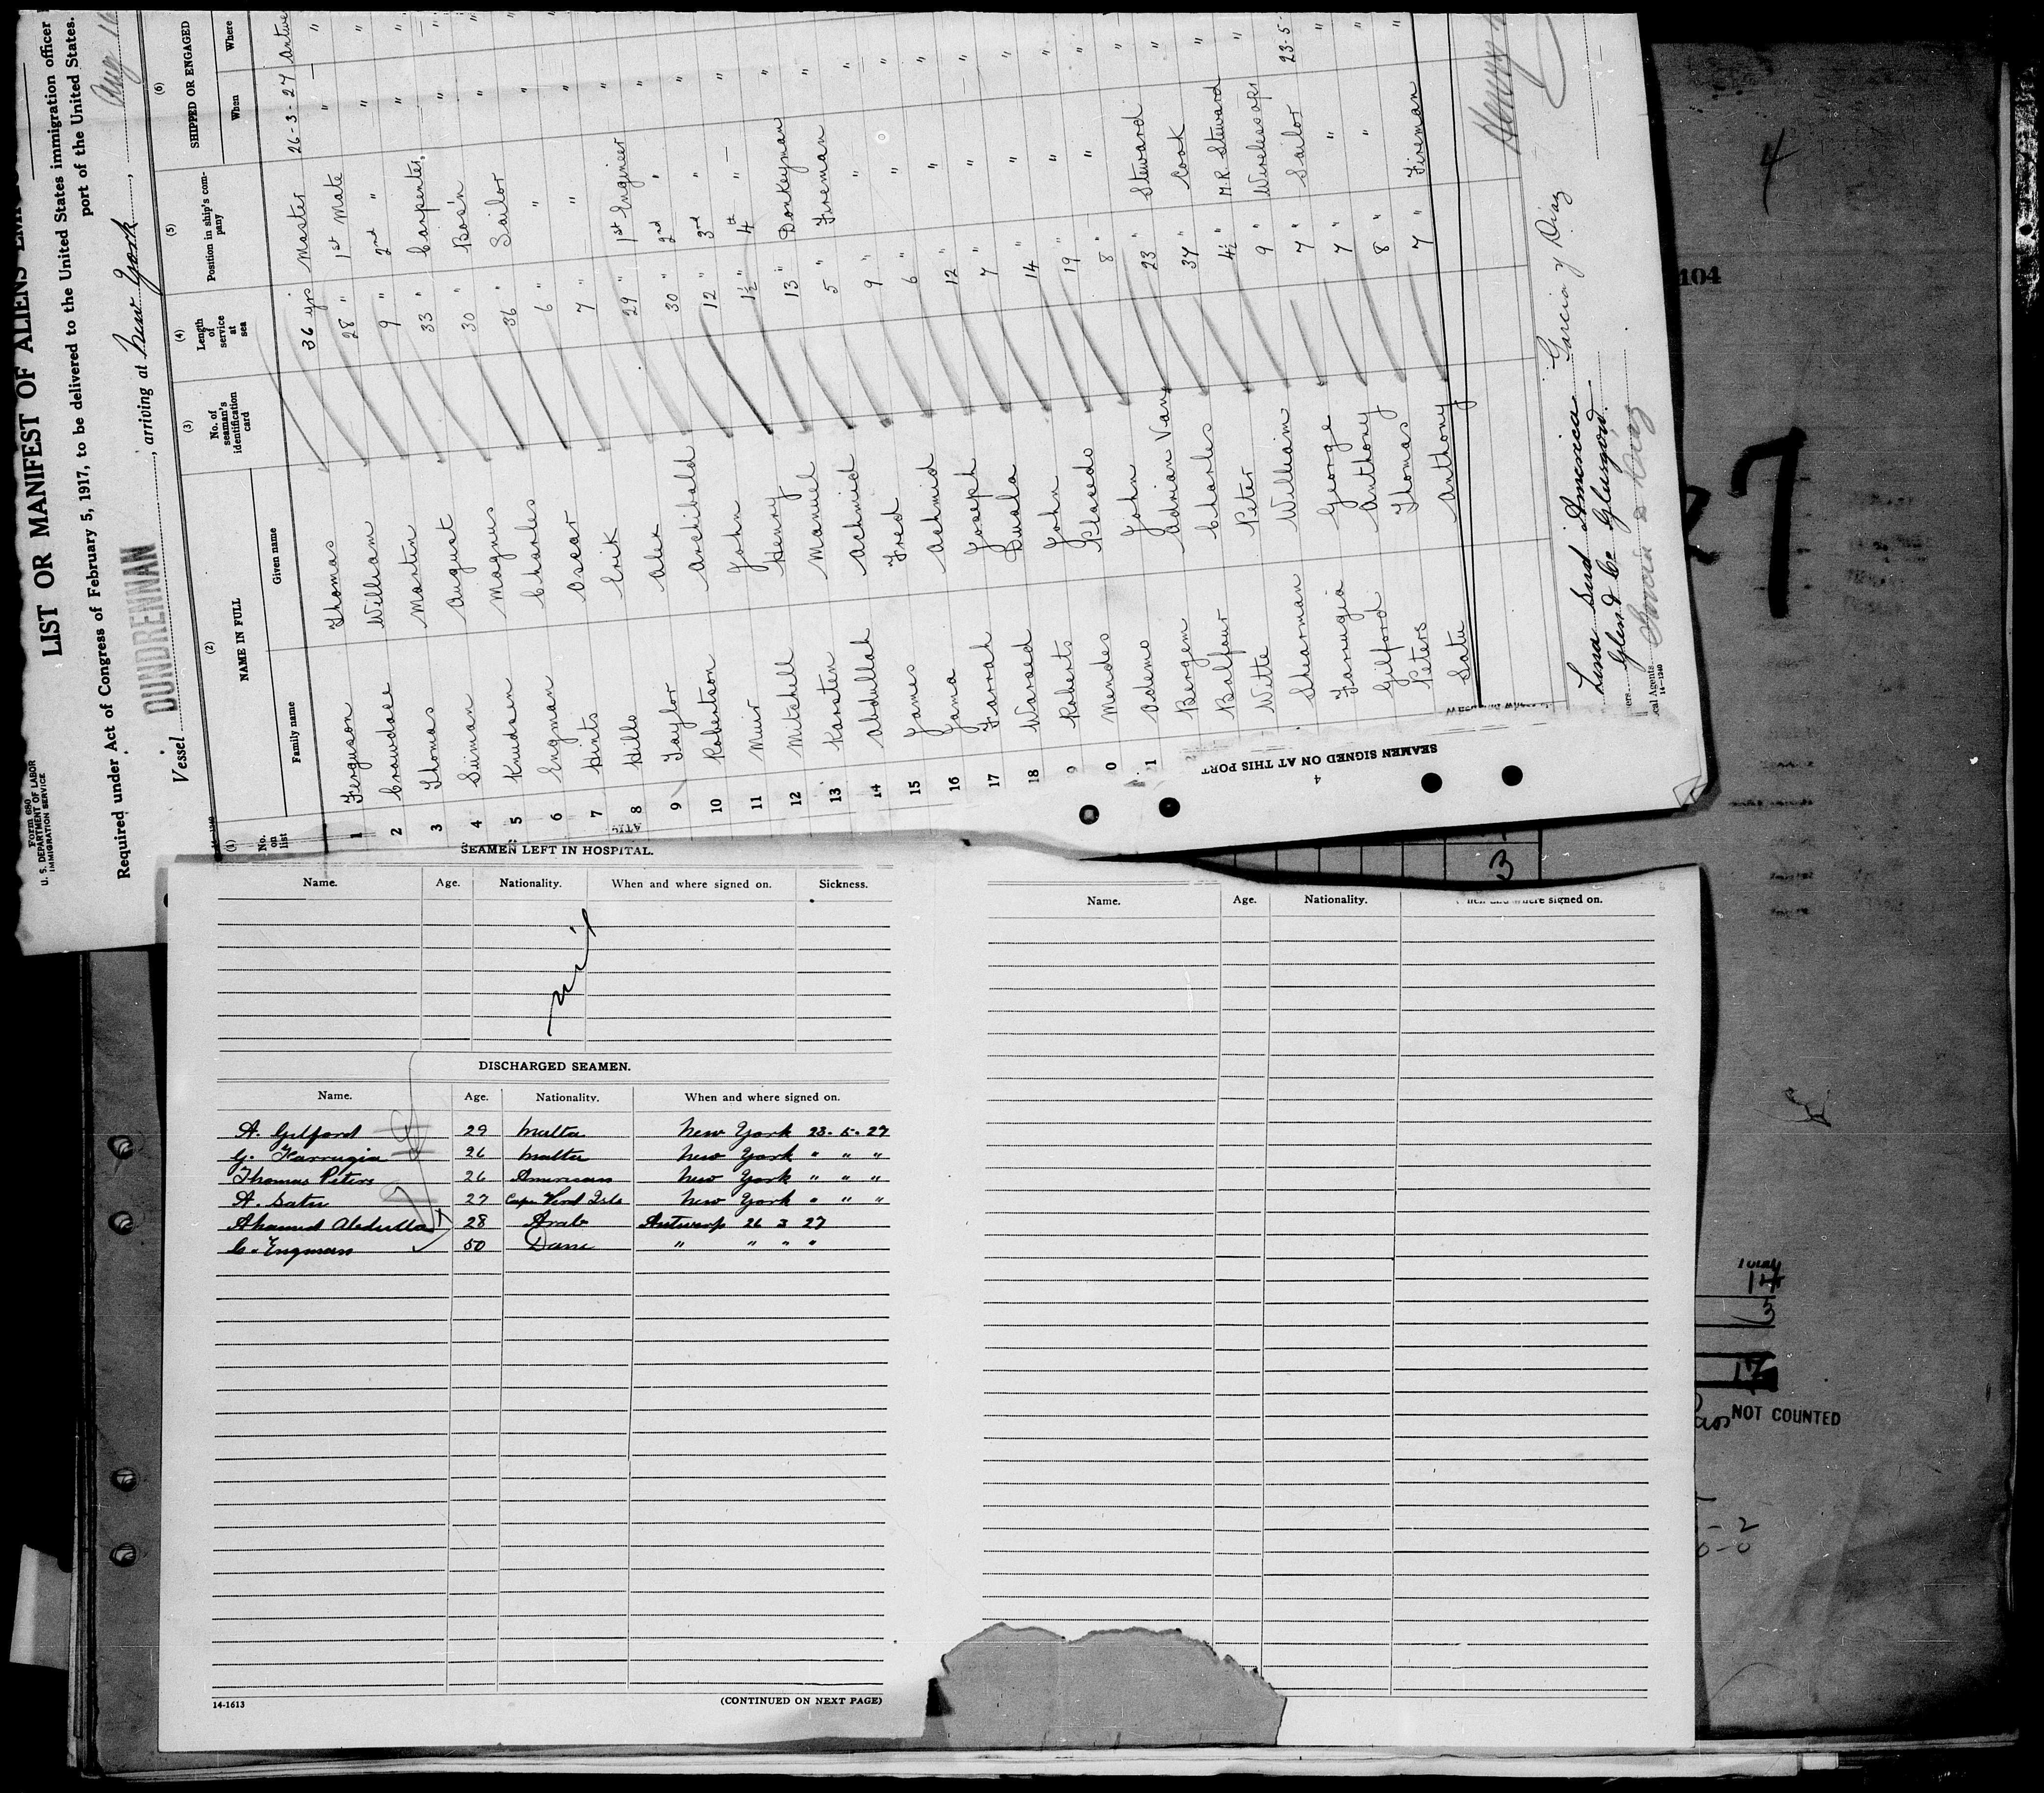 Form 680
U. S. DEPARTMENT OF LABOR
IMMIGRATION SERVICE
LIST OR MANIFEST OF ALIENS
Required under Act of Congress of February 5, 1917, to be delivered to the United States immigration officer
port of the United States.
Vessel DUNDRENNAN, arriving at New York, Aug 16
(1) (2) (3) (4) (5) (6)
No. on list NAME IN FULL No. of seaman's identification card Length of service at sea Position in ship's company SHIPPED OR ENGAGED
Family name Given name When Where
1 Ferguson Thomas 36 yrs Master 26-3-27 Antwe
2 Crawdace William 28 " 1st Mate " "
3 Thomas Martin 9 " 2nd " " "
4 Siiman August 33 " Carpenter " "
5 Knudsen Magnus 30 " Bos'n " "
6 Engman Charles 36 " Sailor " "
7 Hints Oscar 6 " " " "
8 Hills Erik 7 " " " "
9 Taylor Alex 29 " 1st Engineer " "
10 Robertson Archibald 30 " 2nd " " "
11 Muir John 12 " 3rd " " "
12 Mitchell Henry 1½ " 4th " " "
13 Karsten Manuel 13 " Donkeyman " "
14 Abdullah Achmid 5 " Fireman " "
15 James Fred 9 " " " "
16 Jama Achmid 6 " " " "
17 Farrah Joseph 12 " " " "
18 Warsed Duala 7 " " " "
9 Roberts John 14 " " " "
0 Mendes Placedo 19 " " " "
1 Ademo John 8 " " " "
Bergen Adrian Van 23 " Steward " "
Balfour Charles 37 " Cook " "
Witte Peter 4½ " M.R. Steward " "
Shearman William 9 " Wireless op. " "
Farrugia George 7 " Sailor 23-5-
Gilford Anthony 7 " " " "
Peters Thomas 8 " " " "
Satu Anthony 7 " Fireman " "
Linea Sud Americana
Glen & Co Glasgow
Garcia y Diaz
Garcia & Diaz
ers
cal Agents
14-1240
Henry
SEAMEN SIGNED ON AT THIS PORT
4
SEAMEN LEFT IN HOSPITAL.
Name. Age. Nationality. When and where signed on. Sickness.
nil
DISCHARGED SEAMEN.
Name. Age. Nationality. When and where signed on.
A. Gilford 29 Malta New York 23-5-27
G. Farrugia 26 Malta New York " " "
Thomas Peters 26 American New York " " "
A. Satu 27 Cape Verd Isls New York " " "
Ahamed Abdulla 28 Arab Antwerp 26 3 27
C. Engman 50 Dane " " " "
14-1613 (CONTINUED ON NEXT PAGE)
Name. Age. Nationality. When and where signed on.
3
4
104
7
NOT COUNTED